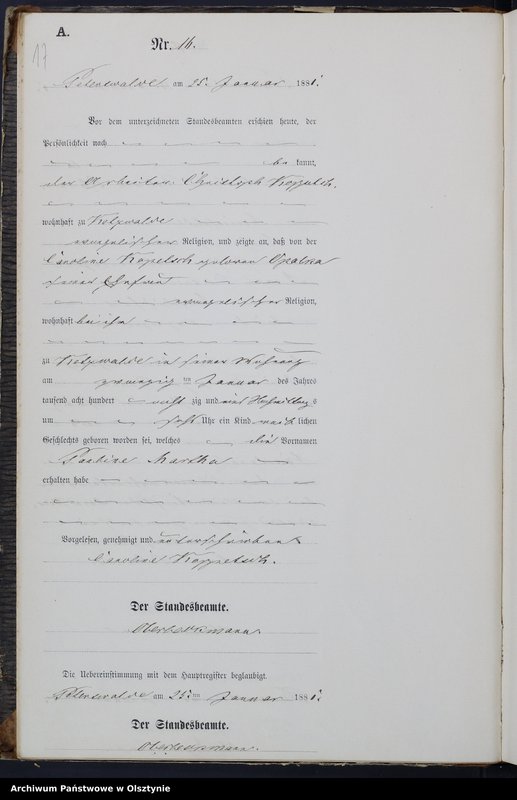 A.
17
Nr. 16.
am 25. Januar 1881.
Vor dem unterzeichneten Standesbeamten erschien heute, der
Persönlichkeit nach
be kannt,
der Arbeiter Christoph
wohnhaft zu
evangelischer Religion, und zeigte an, daß von der
Caroline geboren
seiner Ehefrau
evangelischer Religion,
wohnhaft bei ihm
zu in seiner Wohnung
am zwanzig ten Januar des Jahres
tausend acht hundert acht zig und eins Nachmittags
um Uhr ein Kind weib lichen
Geschlechts geboren worden sei, welches die Vornamen
Pauline Martha
erhalten habe
Vorgelesen, genehmigt und unterschrieben
Caroline
Der Standesbeamte.
Die Uebereinstimmung mit dem Hauptregister beglaubigt.
am 25. ten Januar 1881.
Der Standesbeamte.
Archiwum Państwowe w Olsztynie